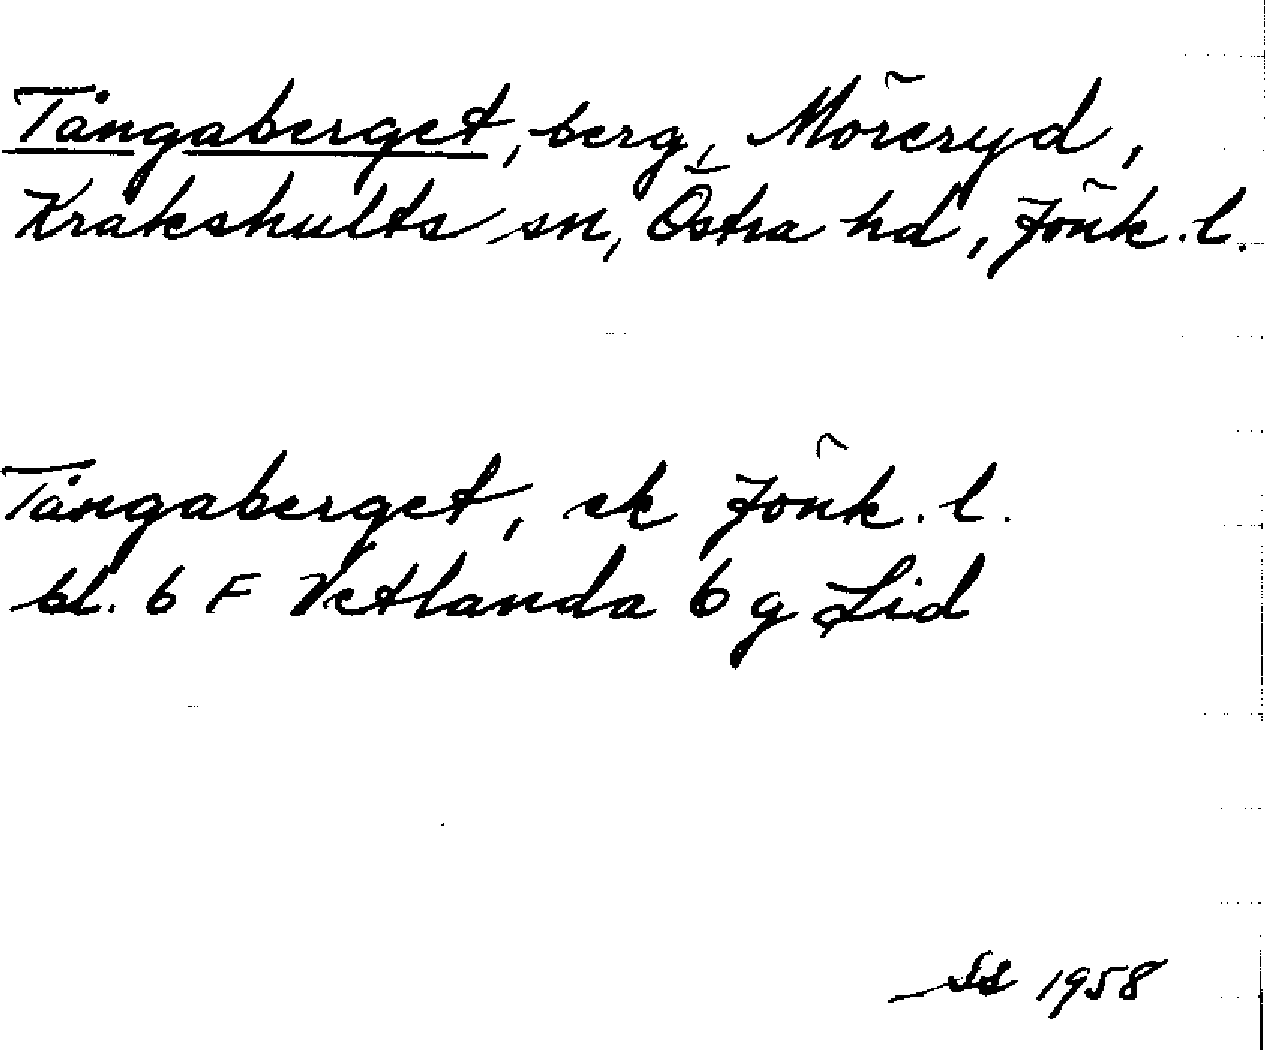 Tångaberget, berg, Möreryd,
Kråkshults sn, Östra hd, Jönk. l.
Tångaberget, ek Jönk. l.
bl. 6 F Vetlanda 6 g Lid
SS 1958